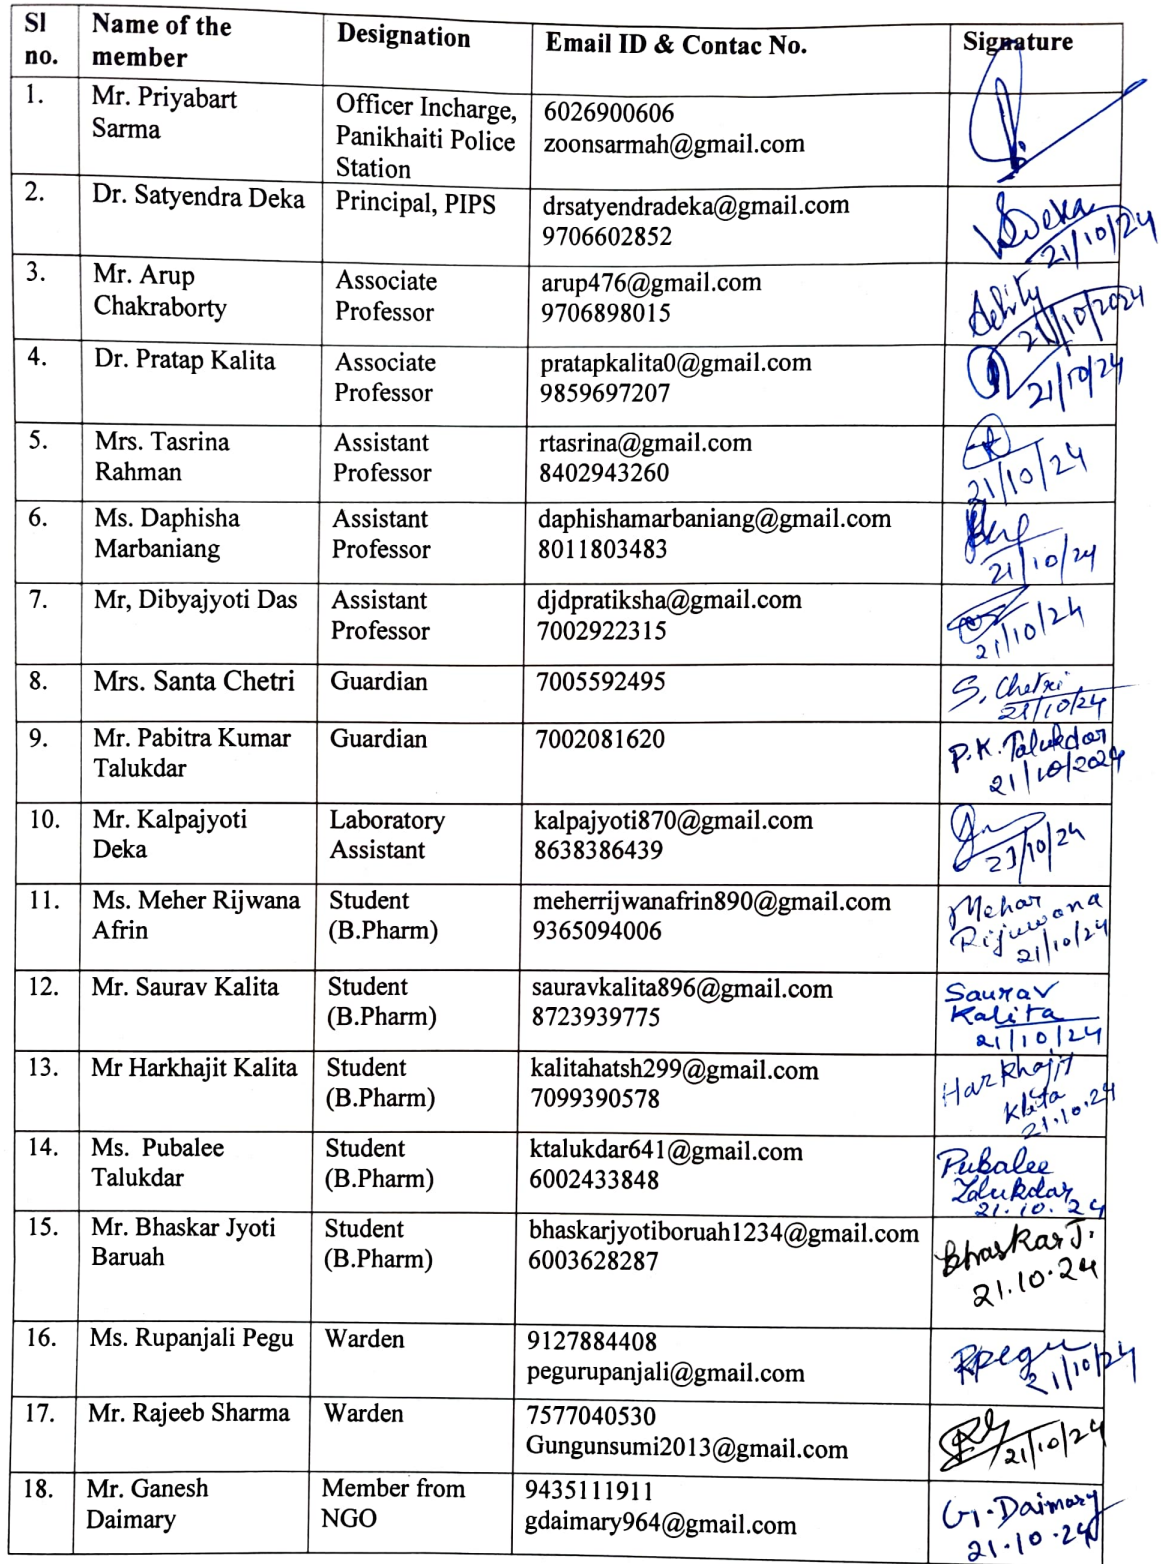 Sl no. Name of the member Designation Email ID & Contac No. Signature
1. Mr. Priyabart Sarma Officer Incharge, Panikhaiti Police Station 6026900606 zoonsarmah@gmail.com
2. Dr. Satyendra Deka Principal, PIPS drsatyendradeka@gmail.com 9706602852 SDeka 21/10/24
3. Mr. Arup Chakraborty Associate Professor arup476@gmail.com 9706898015 21/10/2024
4. Dr. Pratap Kalita Associate Professor pratapkalita0@gmail.com 9859697207 21/10/24
5. Mrs. Tasrina Rahman Assistant Professor rtasrina@gmail.com 8402943260 21/10/24
6. Ms. Daphisha Marbaniang Assistant Professor daphishamarbaniang@gmail.com 8011803483 21/10/24
7. Mr, Dibyajyoti Das Assistant Professor djdpratiksha@gmail.com 7002922315 21/10/24
8. Mrs. Santa Chetri Guardian 7005592495 S. Chetri 21/10/24
9. Mr. Pabitra Kumar Talukdar Guardian 7002081620 P.K. Talukdar 21/10/2024
10. Mr. Kalpajyoti Deka Laboratory Assistant kalpajyoti870@gmail.com 8638386439 21/10/24
11. Ms. Meher Rijwana Afrin Student (B.Pharm) meherrijwanafrin890@gmail.com 9365094006 Mehar Rijuwana 21/10/24
12. Mr. Saurav Kalita Student (B.Pharm) sauravkalita896@gmail.com 8723939775 Saurav Kalita 21/10/24
13. Mr Harkhajit Kalita Student (B.Pharm) kalitahatsh299@gmail.com 7099390578 Harkhajit Klita 21.10.24
14. Ms. Pubalee Talukdar Student (B.Pharm) ktalukdar641@gmail.com 6002433848 Pubalee Talukdar 21.10.24
15. Mr. Bhaskar Jyoti Baruah Student (B.Pharm) bhaskarjyotiboruah1234@gmail.com 6003628287 Bhaskar J. 21.10.24
16. Ms. Rupanjali Pegu Warden 9127884408 pegurupanjali@gmail.com Rpegu 21/10/24
17. Mr. Rajeeb Sharma Warden 7577040530 Gungunsumi2013@gmail.com 21/10/24
18. Mr. Ganesh Daimary Member from NGO 9435111911 gdaimary964@gmail.com G. Daimary 21.10.24